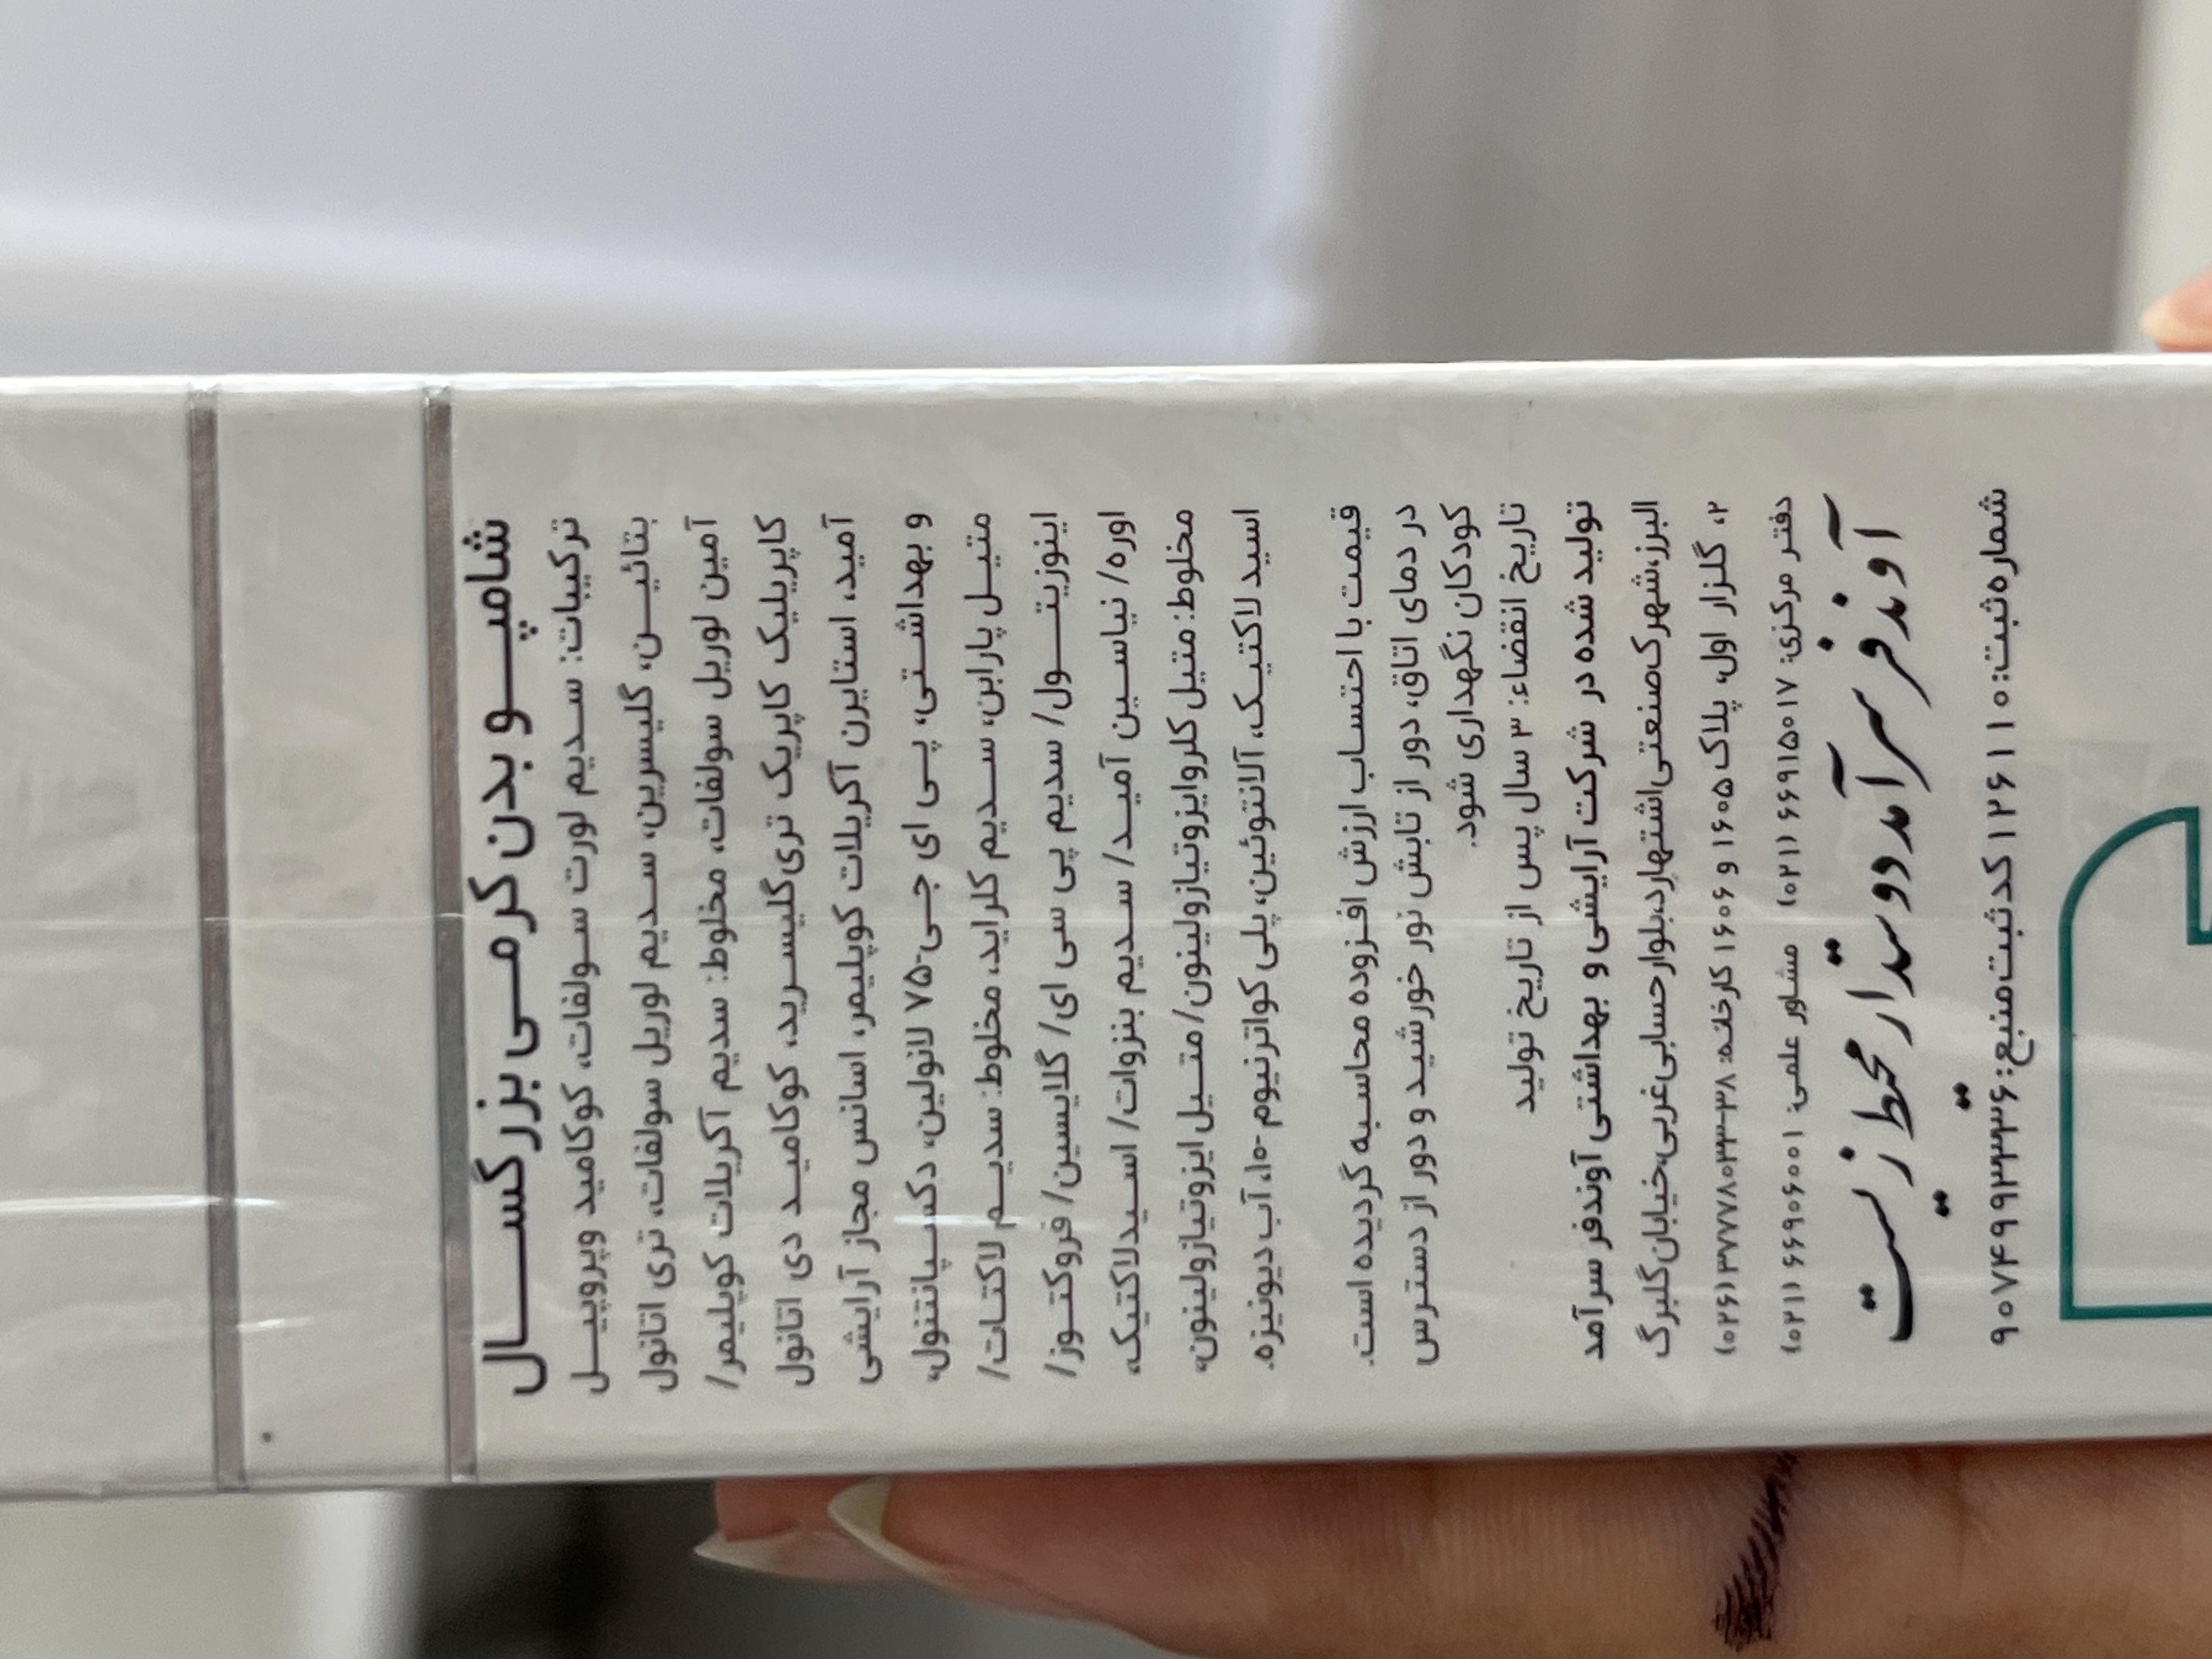 شامپو بدن کرمی بزرگسال
ترکیبات: سدیم لورت سولفات، کوکامید وپروپیل
بتائین، گلیسرین، سدیم لوریل سولفات، تری اتانول
آمین لوریل سولفات، مخلوط: سدیم آکریلات کوپلیمر/
کاپریلیک کاپریک تری‌گلیسرید، کوکامید دی اتانول
آمید، استایرن آکریلات کوپلیمر، اسانس مجاز آرایشی
و بهداشتی، پی ای جی-۷۵ لانولین، دکسپانتنول،
متیل پارابن، سدیم کلراید، مخلوط: سدیم لاکتات/
اینوزیتول/ سدیم پی سی ای/ گلایسین/ فروکتوز/
اوره/ نیاسین آمید/ سدیم بنزوات/ اسیدلاکتیک،
مخلوط: متیل کلروایزوتیازولینون/ متیل ایزوتیازولینون،
اسید لاکتیک، آلانتوئین، پلی کواترنیوم -۱۰، آب دیونیزه.
قیمت با احتساب ارزش افزوده محاسبه گردیده است.
در دمای اتاق، دور از تابش نور خورشید و دور از دسترس
کودکان نگهداری شود.
تاریخ انقضاء: ۳ سال پس از تاریخ تولید
تولید شده در شرکت آرایشی و بهداشتی آوندفر سرآمد
البرز،شهرک‌صنعتی‌اشتهارد،بلوارحسابی‌غربی،خیابان‌گلبرگ
۲، گلزار اول، پلاک ۱۶۰۵ و ۱۶۰۶ کارخانه: ۳۸-۳۷۷۷۸۰۳۳(۰۲۶)
دفتر مرکزی: ۶۶۹۱۵۰۱۷ (۰۲۱) مشاور علمی: ۶۶۹۰۶۰۰۱ (۰۲۱)
آوندفر سرآمد دوستدار محیط زیست
شماره‌ثبت:۱۲۶۱۱۰ کدثبت‌منبع: